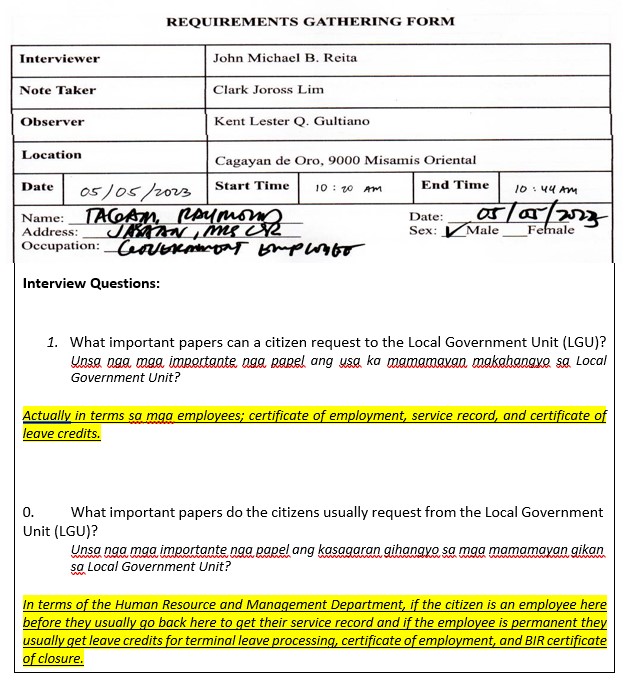 REQUIREMENTS GATHERING FORM
Interviewer John Michael B. Reita
Note Taker Clark Joross Lim
Observer Kent Lester Q. Gultiano
Location Cagayan de Oro, 9000 Misamis Oriental
Date 05/05/2023 Start Time 10:20 AM End Time 10:44 AM
Name: TAGAM, RAYMOND Date: 05/05/2023
Address: JASAAN, MIS OR Sex: ✓Male ___Female
Occupation: GOVERNMENT EMPLOYEE
Interview Questions:
1. What important papers can a citizen request to the Local Government Unit (LGU)?
Unsa nga mga importante nga papel ang usa ka mamamayan makahangyo sa Local
Government Unit?
Actually in terms sa mga employees; certificate of employment, service record, and certificate of
leave credits.
0. What important papers do the citizens usually request from the Local Government
Unit (LGU)?
Unsa nga mga importante nga papel ang kasagaran gihangyo sa mga mamamayan gikan
sa Local Government Unit?
In terms of the Human Resource and Management Department, if the citizen is an employee here
before they usually go back here to get their service record and if the employee is permanent they
usually get leave credits for terminal leave processing, certificate of employment, and BIR certificate
of closure.